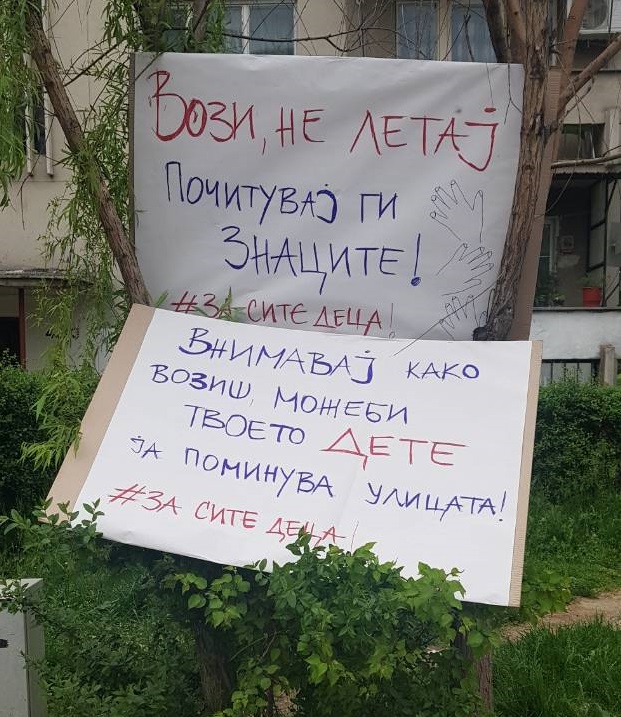 ВОЗИ, НЕ ЛЕТАЈ
ПОЧИТУВАЈ ГИ
ЗНАЦИТЕ!
#ЗА СИТЕ ДЕЦА!
ВНИМАВАЈ КАКО
ВОЗИШ, МОЖЕБИ
ТВОЕТО ДЕТЕ
ЈА ПОМИНУВА УЛИЦАТА!
#ЗА СИТЕ ДЕЦА!